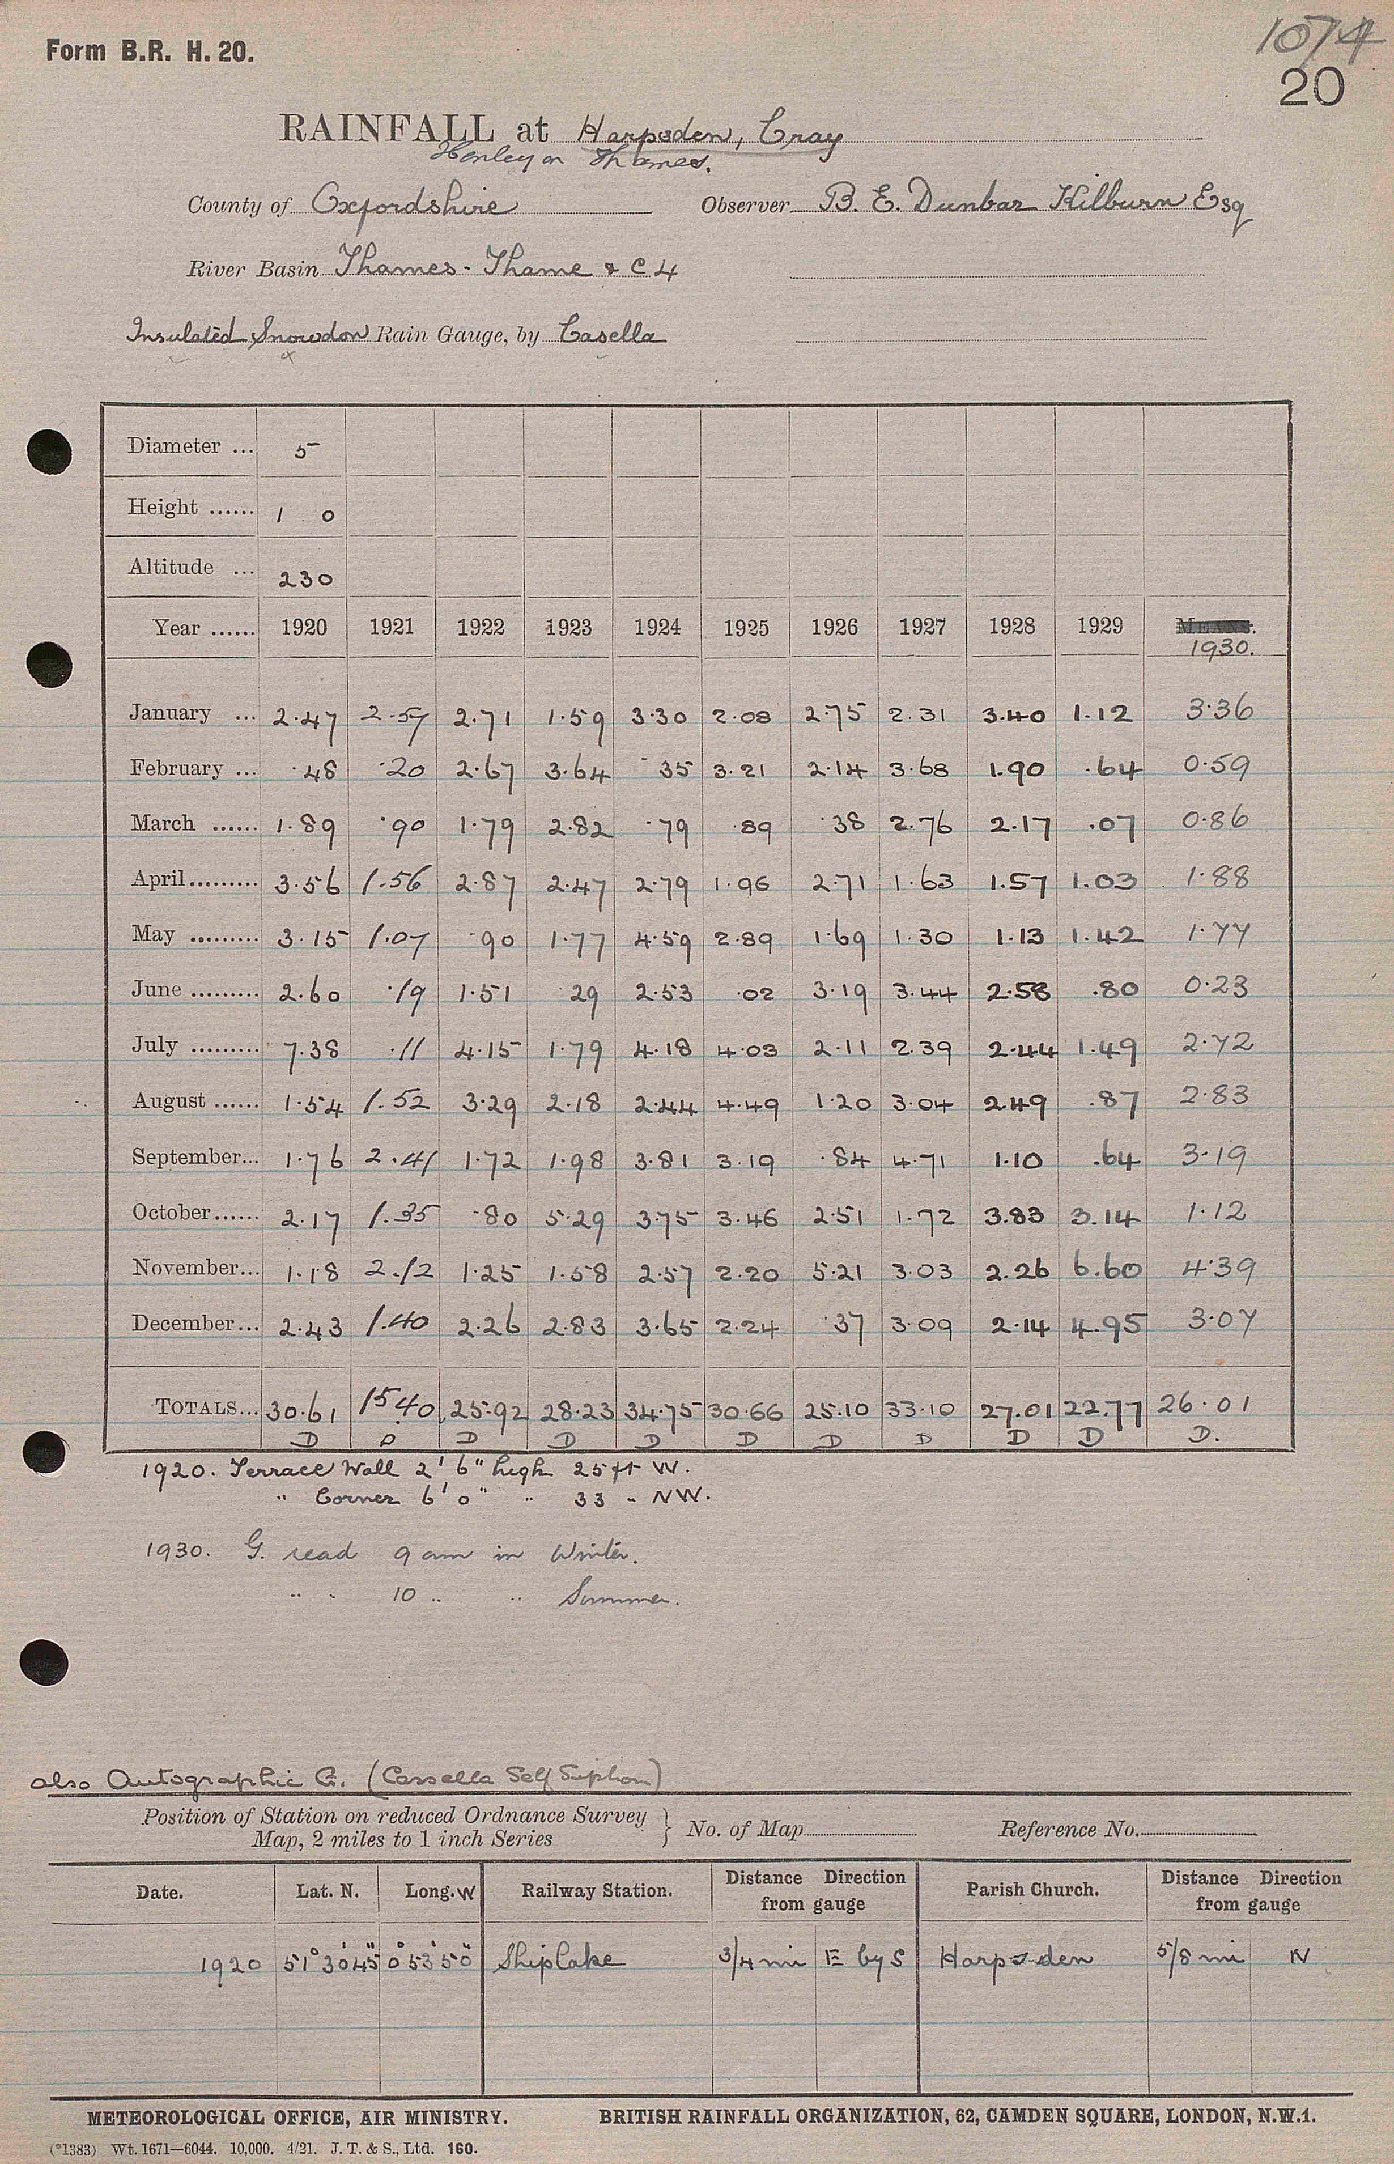 Form B.R. H. 20.
1074
20
RAINFALL at Harpsden, Cray
Henley on Thames.
County of Oxfordshire Observer B. E. Dunbar Kilburn Esq
River Basin Thames - Thame & C 4
Insulated Snowdon Rain Gauge, by Casella
Diameter ... 5
Height ...... 1 0
Altitude ... 230
Year ...... 1920 1921 1922 1923 1924 1925 1926 1927 1928 1929 MEANS.
1930.
January ... 2.47 2.57 2.71 1.59 3.30 2.08 2.75 2.31 3.40 1.12 3.36
February ... .48 .20 2.67 3.64 .35 3.21 2.14 3.68 1.90 .64 0.59
March ...... 1.89 .90 1.79 2.82 .79 .89 .38 2.76 2.17 .07 0.86
April ......... 3.56 1.56 2.87 2.47 2.79 1.96 2.71 1.63 1.57 1.03 1.88
May ......... 3.15 1.07 .90 1.77 4.59 2.89 1.69 1.30 1.13 1.42 1.77
June ......... 2.60 .19 1.51 .29 2.53 .02 3.19 3.44 2.58 .80 0.23
July ......... 7.38 .11 4.15 1.79 4.18 4.03 2.11 2.39 2.44 1.49 2.72
August ...... 1.54 1.52 3.29 2.18 2.44 4.49 1.20 3.04 2.49 .87 2.83
September... 1.76 2.41 1.72 1.98 3.81 3.19 .84 4.71 1.10 .64 3.19
October ...... 2.17 1.35 .80 5.29 3.75 3.46 2.51 1.72 3.83 3.14 1.12
November... 1.18 2.12 1.25 1.58 2.57 2.20 5.21 3.03 2.26 6.60 4.39
December... 2.43 1.40 2.26 2.83 3.65 2.24 .37 3.09 2.14 4.95 3.07
TOTALS... 30.61 15.40 25.92 28.23 34.75 30.66 25.10 33.10 27.01 22.77 26.01
D D D D D D D D D D D.
1920. Terrace Wall 2' 6" high 25 ft W.
" Corner 6' 0" " 33 " NW.
1930. G. read 9 am in Winter.
" " 10 " " Summer.
also Autographic G. (Cassella Self Syphon)
Position of Station on reduced Ordnance Survey Map, 2 miles to 1 inch Series } No. of Map Reference No.
Date. Lat. N. Long. W Railway Station. Distance Direction from gauge Parish Church. Distance Direction from gauge
1920 51° 30' 45" 0° 53' 50" Shiplake 3/4 mi E by S Harpsden 5/8 mi N
METEOROLOGICAL OFFICE, AIR MINISTRY. BRITISH RAINFALL ORGANIZATION, 62, CAMDEN SQUARE, LONDON, N.W.1.
(*1383) Wt. 1671—6044. 10,000. 4/21. J. T. & S., Ltd. 160.